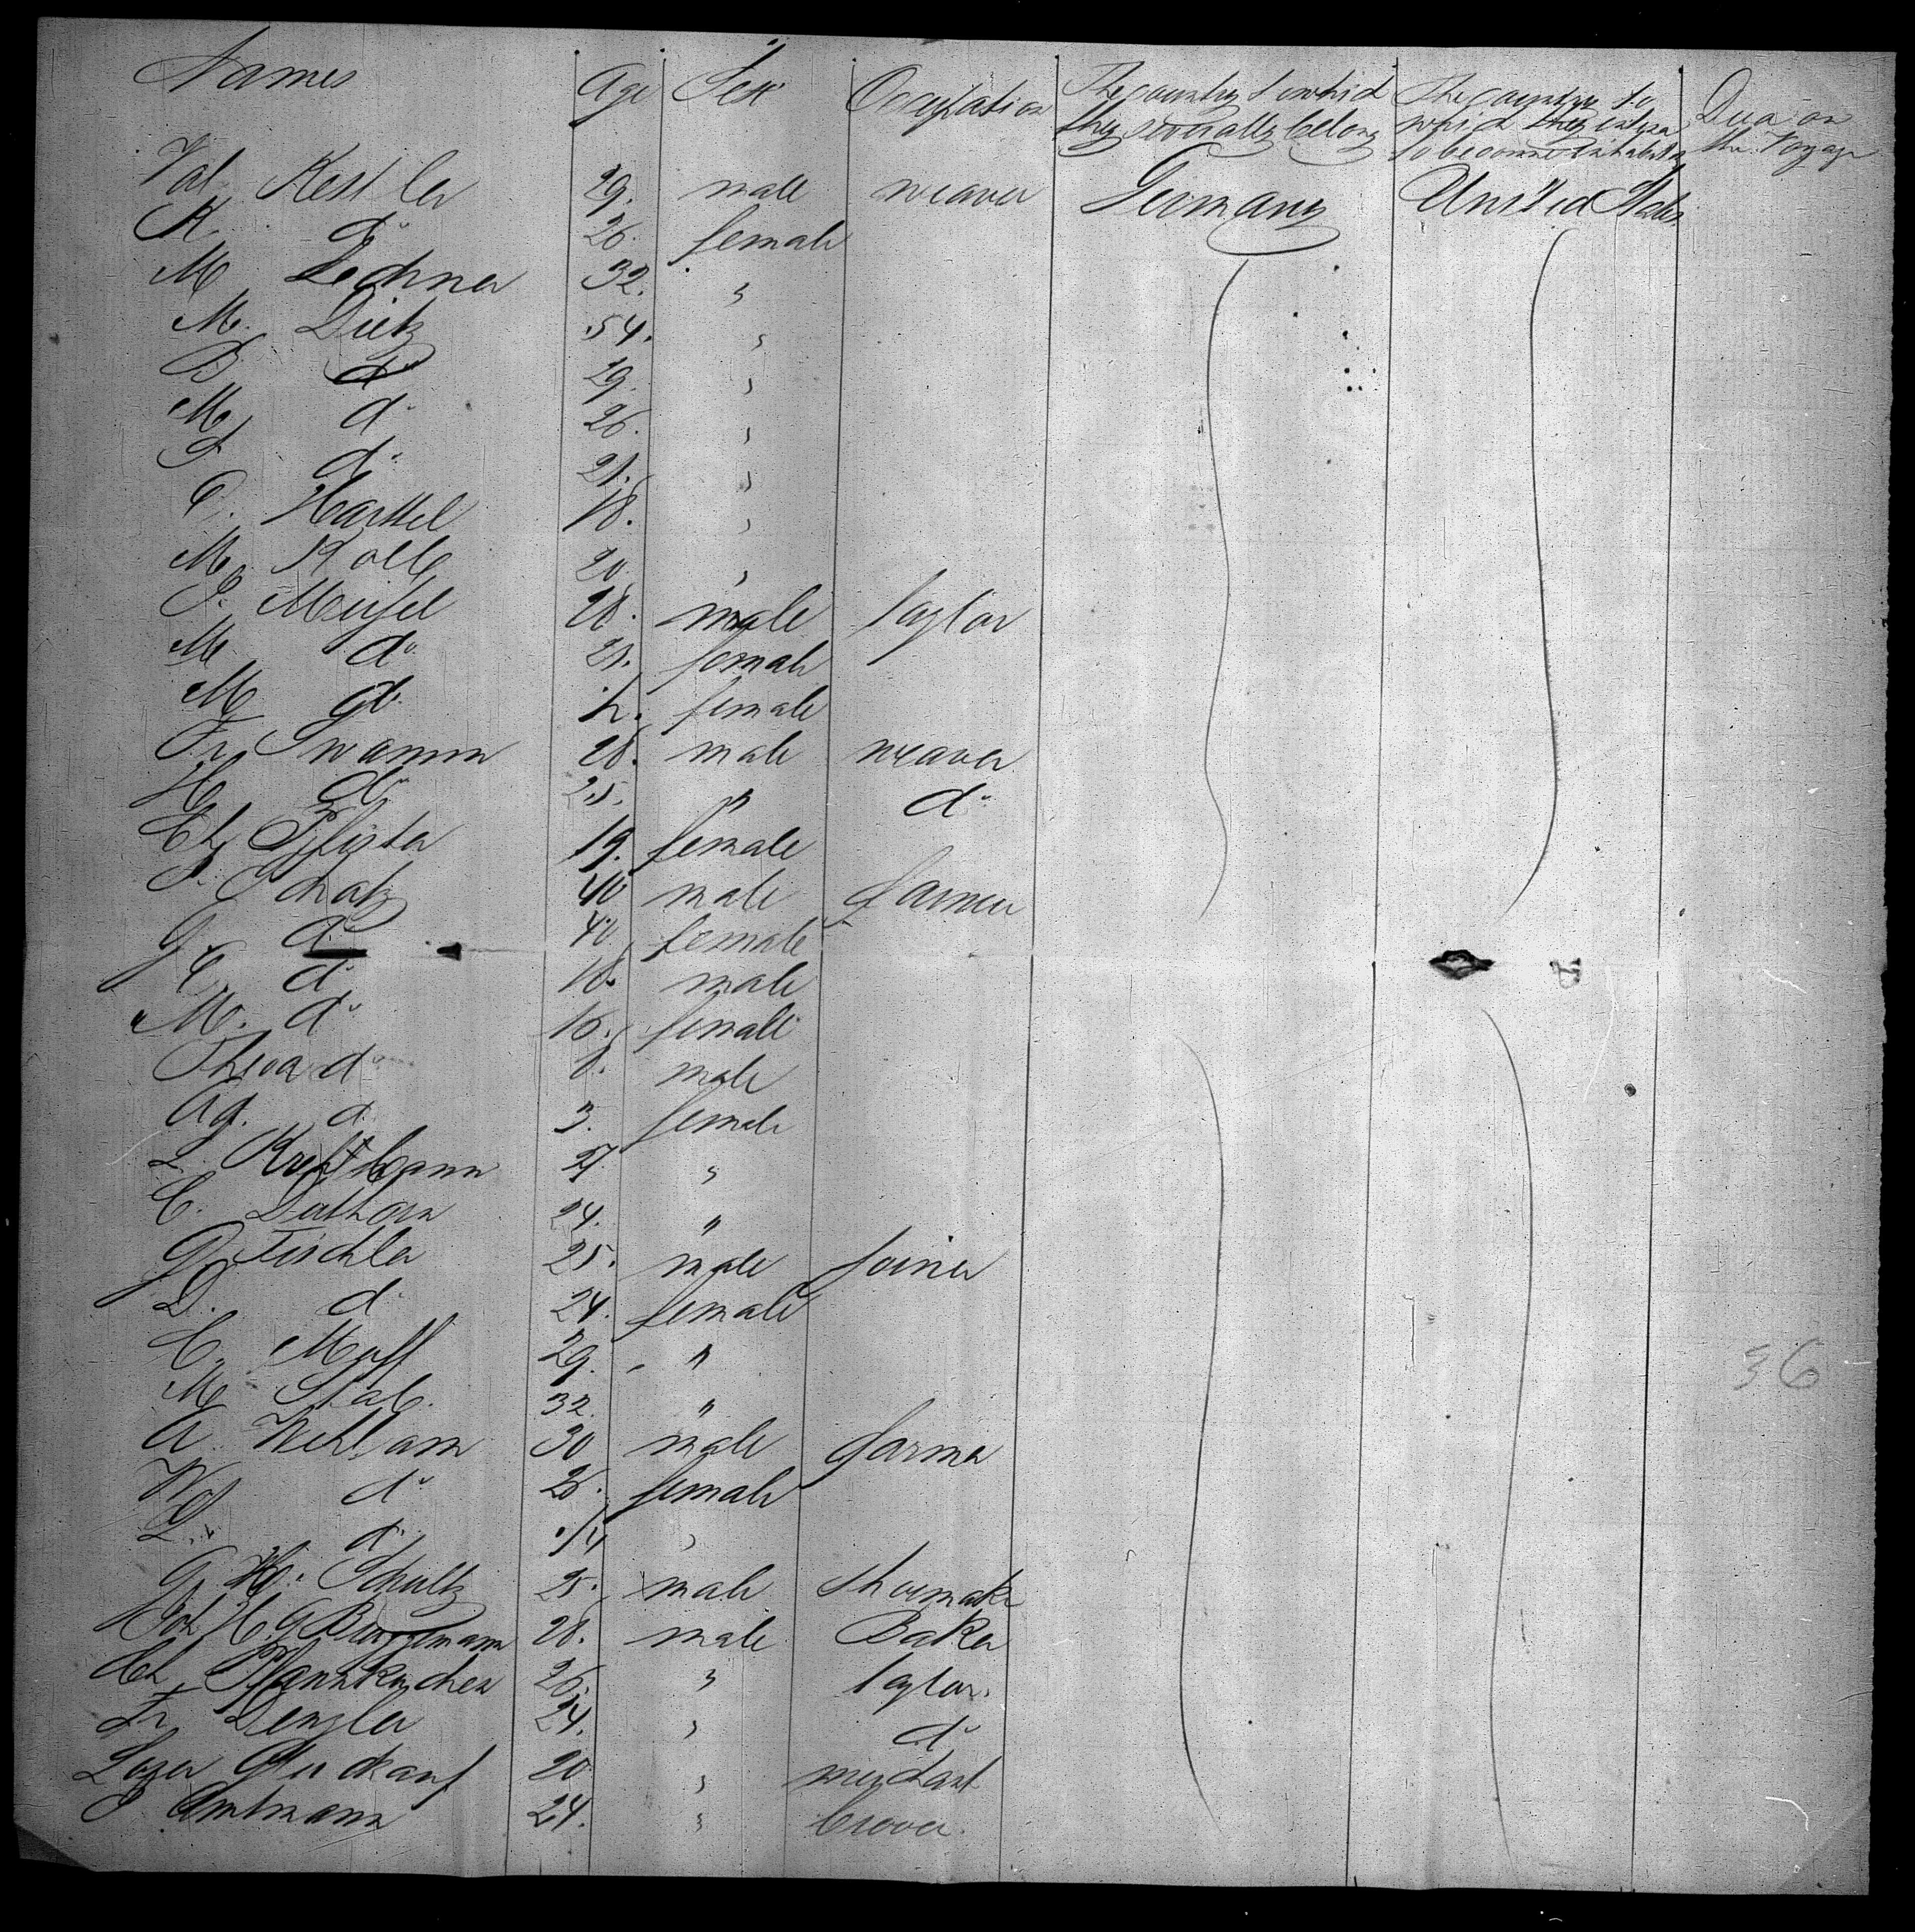 Names Age Sex Occupation The country to which they severally belong The country to which they intend to become inhabitants Died on the Voyage
Val. Kestler 29. male weaver Germany United States
K. do 26. female
M. Lechner 32. "
M. Dietz 54. "
B. do 29. "
M. do 26. "
F. do 21. "
C. Harttel 18. "
M. Kolb 20. "
J. Meisel 28. male Taylor
M. do 21. female
M. do female
Fr. Swamm 28. male weaver
H. do 25. " do
Ch. Pfister 19. female
J. Schatz 40 male farmer
G. do 40 female
C. do 18. male
M. do 16. female
do 8. male
Ag. do 3. female
L. 27. "
C. 24. "
G. Tischler 25. male Joiner
D. do 24. female
C. Moff 29. "
M. Stab. 32. "
A. 30 male farmer
W. do 26. female
L. do "
G. H. Schultz 25. male Shoemaker
Joh. H. G. Bruggemann 28. male Baker
Ch. Pfannkuchen 26. " Taylor.
Fr. Dengler 24. " do
Lazer Gluckauf 20 " merchant
J. Amtmann 24. " brewer.
36